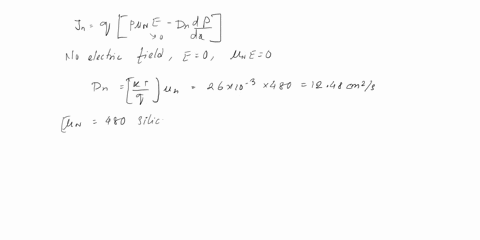 Jn = q [ PμnE →0 - Dn dP/dx ]
No electric field, E=0, μnE=0
Dn = [kT/q] μn = 26×10^-3 × 480 = 12.48 cm²/s
[μn = 480 silic